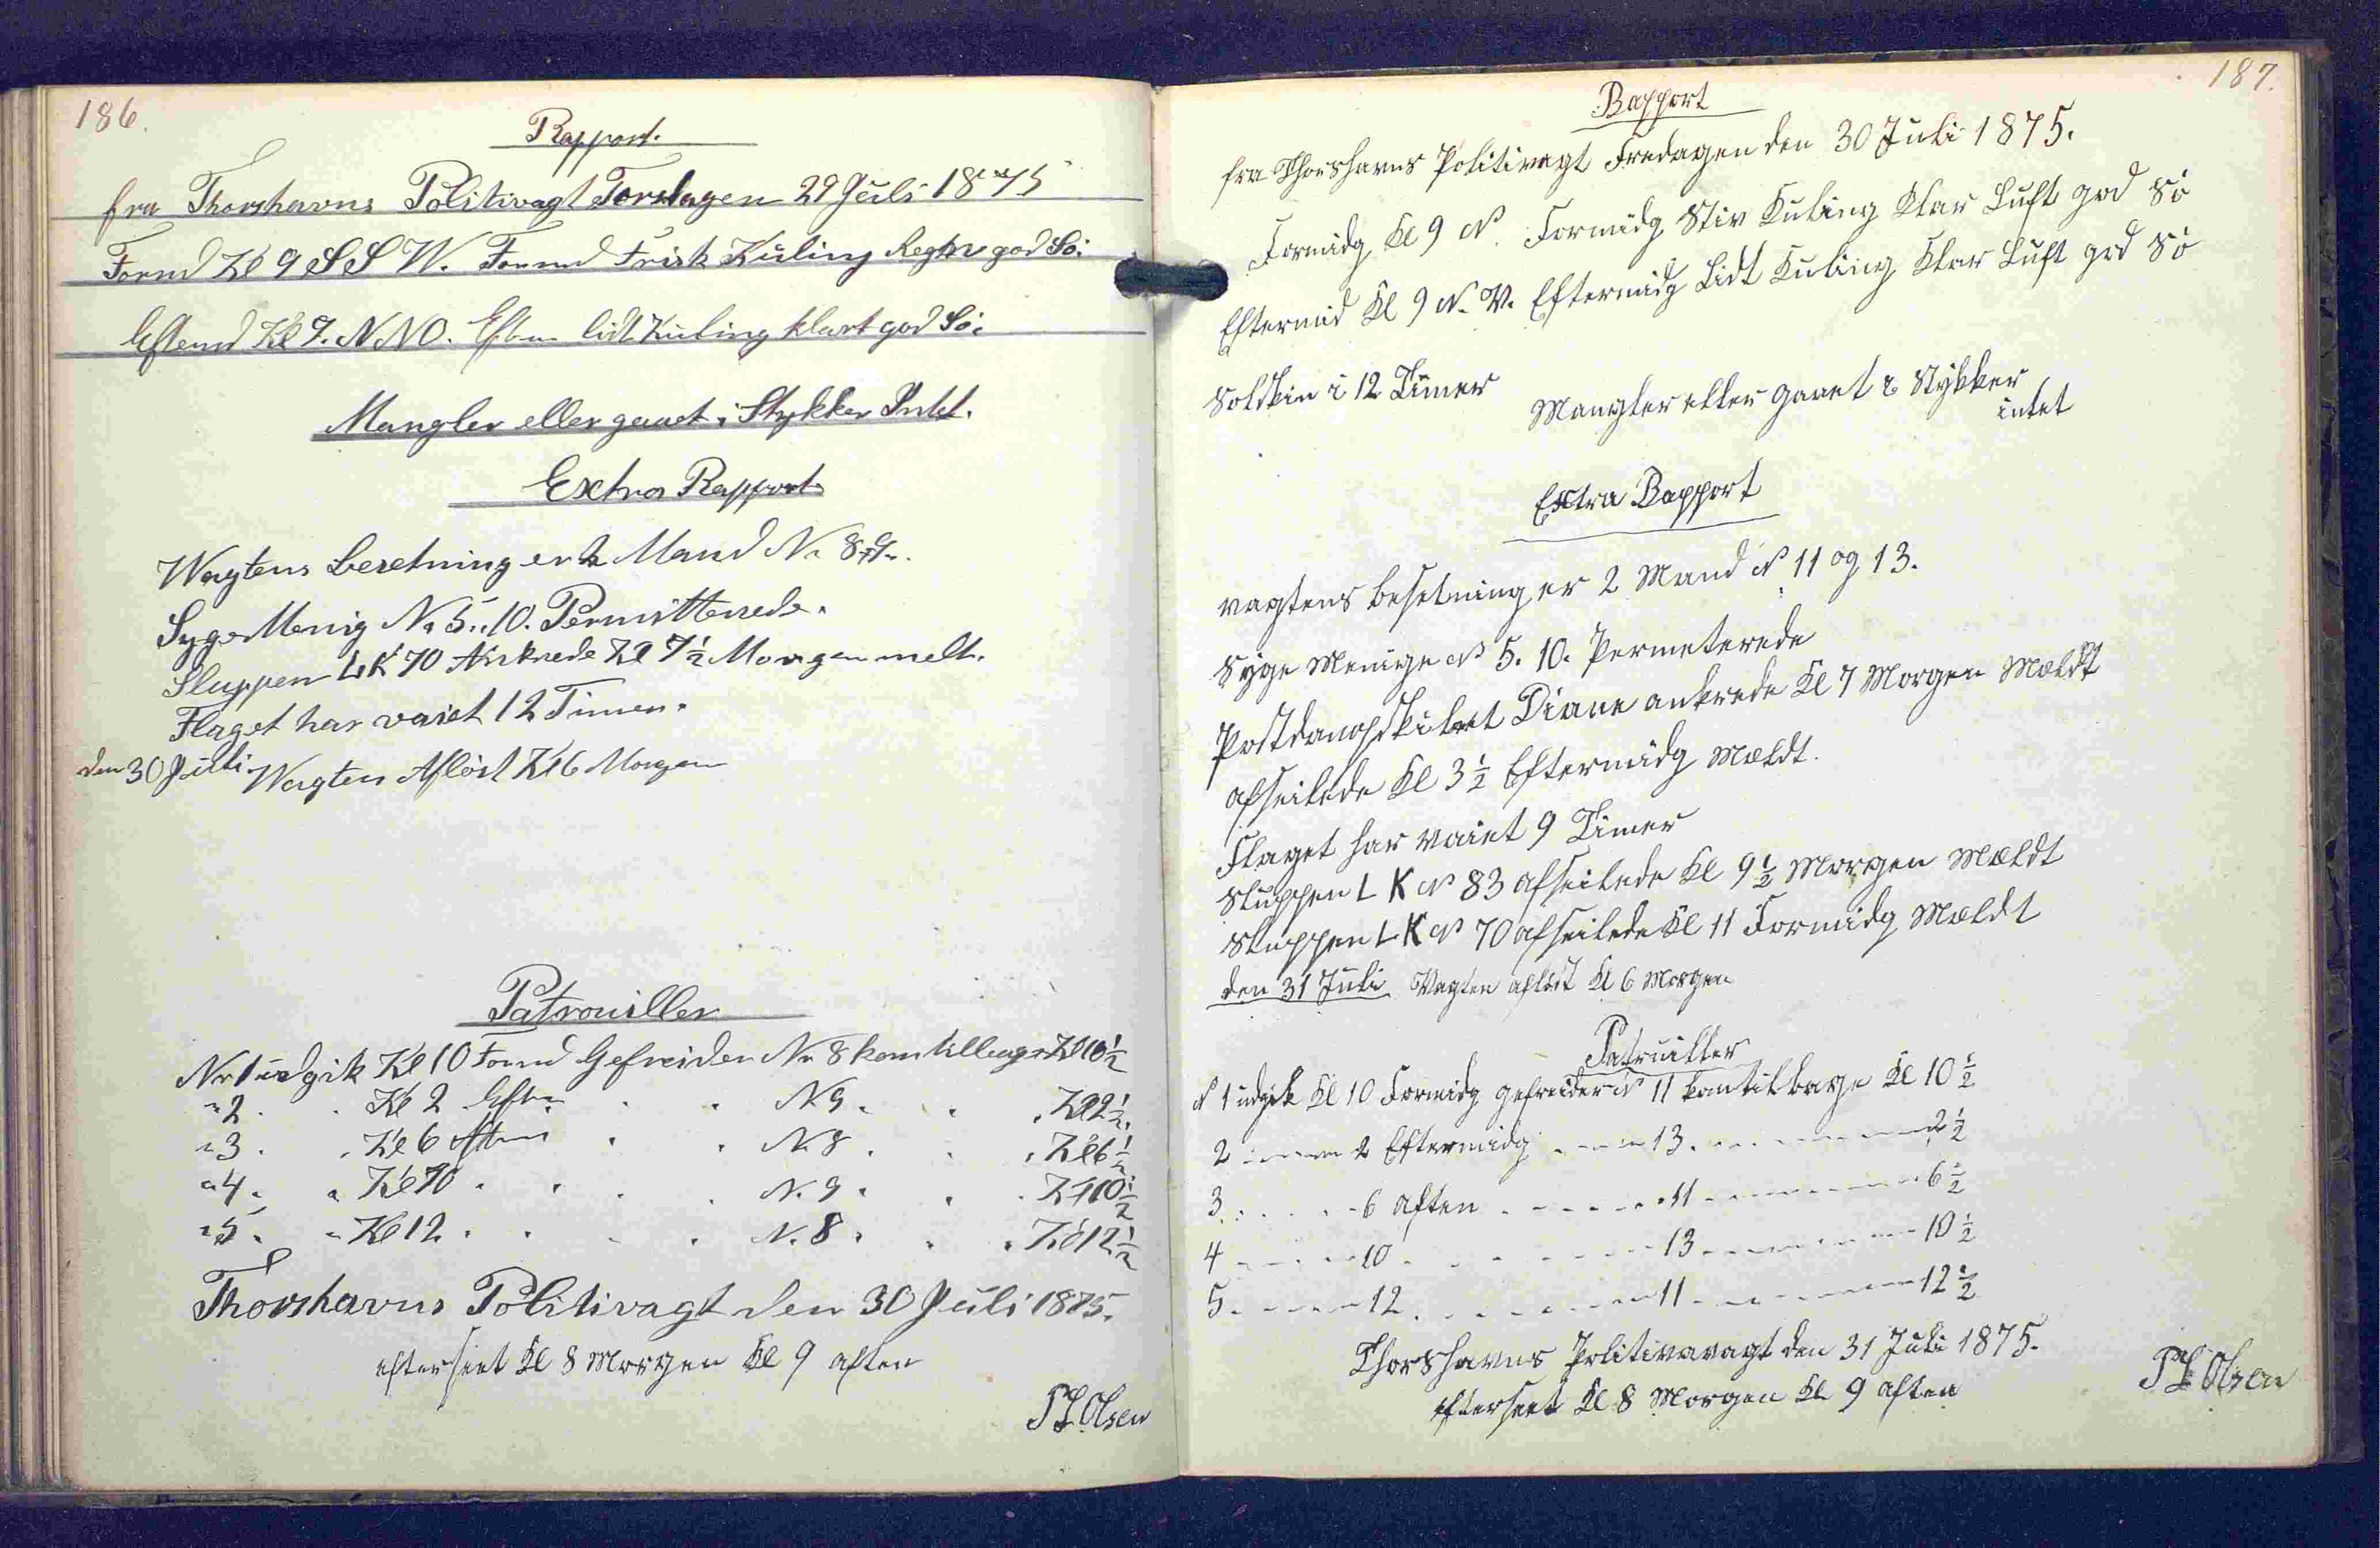 186.
Rapport.
fra Thorshavns Politivagt Torsdagen 29 Juli 1875
Formd Kl 9 S S W. Formd Frisk Kuling Regn god Sö.
Eftemd Kl 9. N N O. Eftm lidt Kuling klart god Sö.
Mangler eller gaaet i Stykker Intet.
Extra Rapport
Wagtens Besetning er 2 Mand Nr 8 & 9.
Syge Menig Nr 5 .. 10. Permitterede.
Sluppen LK 70 Ankrede Kl 7½ Morgen melt.
Flaget har vaiet 12 Timer.
den 30 Juli Wagten Aflöst Kl 6 Morgen
Patrouiller
Nr 1 udgik Kl 10 Formd Gefreider Nr 8 kom tilbage Kl 10½
" 2 . . Kl 2 Eftm . . N 9 . . . Kl 2½.
" 3 . . Kl 6 Aften . . N. 8 . . . Kl 6½
" 4 . . Kl 10 . . . . N. 9 . . . Kl 10½
" 5 . . Kl 12 . . . . N. 8 . . . Kl 12½
Thorshavns Politivagt den 30 Juli 1875.
efterseet Kl 8 Morgen Kl 9 aften
P L Olsen
187.
Rapport
fra Thorshavns Politivagt Fredagen den 30 Juli 1875.
Formidg Kl 9 N. Formidg Stiv Kuling Klar Luft god Sö
Eftermid Kl 9 N. V. Eftermidg Lidt Kuling Klar Luft god Sö
Solskin i 12 Timer Mangler eller gaaet i Stykker
intet
Extra Rapport
vagtens besetning er 2 Mand N 11 og 13.
Syge Menige N 5. 10. Permeterede
Postdampskibet Diana ankrede Kl 7 Morgen Mældt
afseilede Kl 3½ Eftermidg Mældt.
Flaget har vaiet 9 Timer
Sluppen L K N 83 afseilede Kl 9½ Morgen Mældt
Sluppen L K N 70 afseilede Kl 11 Formidg Mældt
den 31 Juli Vagten aflöst Kl 6 Morgen
Patruiller
N 1 udgik Kl 10 Formidg gefreider N 11 kom tilbage Kl 10½
2 - - - - 2 Eftermidg - - - - 13. - - - - - - 2½
3 . . . . - 6 aften - - - - - 11 - - - - - - 6½
4 - - - - 10 - - - - - - 13 - - - - - - 10½
5 - - - - 12 - - - - - - 11 - - - - - - 12½
Thorshavns Politivavagt den 31 Juli 1875.
efterseet Kl 8 Morgen Kl 9 aften
P L Olsen